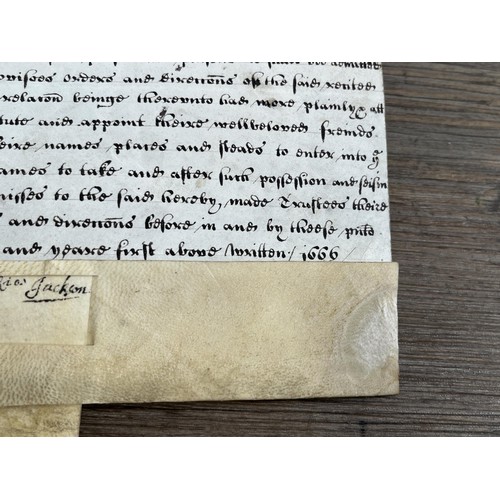 to shall be admitted
orders and direccons of the said recited
relacon beinge thereunto had more plainly & att
tute and appoint theire wellbeloved freinds
eire names, places and steads to enter into &
ames to take and after such possession and seisin
misses to the said hereby made Trustees theire
and direccons before in and by theese pnte
and yeare first above written / 1666
Jackson